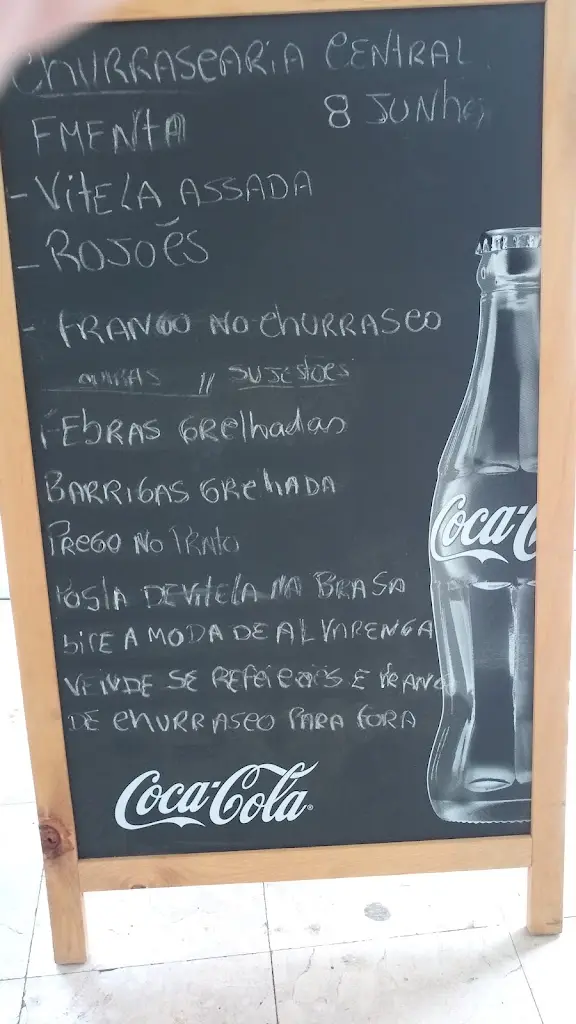 CHURRASCARIA CENTRAL
EMENTA 8 JUNHO
- VITELA ASSADA
- ROJOÊS
- FRANGO NO CHURRASCO
" SUJESTÕES
FEBRAS GRELHADAS
BARRIGAS GRELHADA
PREGO NO PRATO
POSTA DE VITELA NA BRASA
BIFE A MODA DE ALVARENGA
VENDE SE REFEICOIS E FRANGO
DE CHURRASCO PARA FORA
Coca-Cola
Coca-C